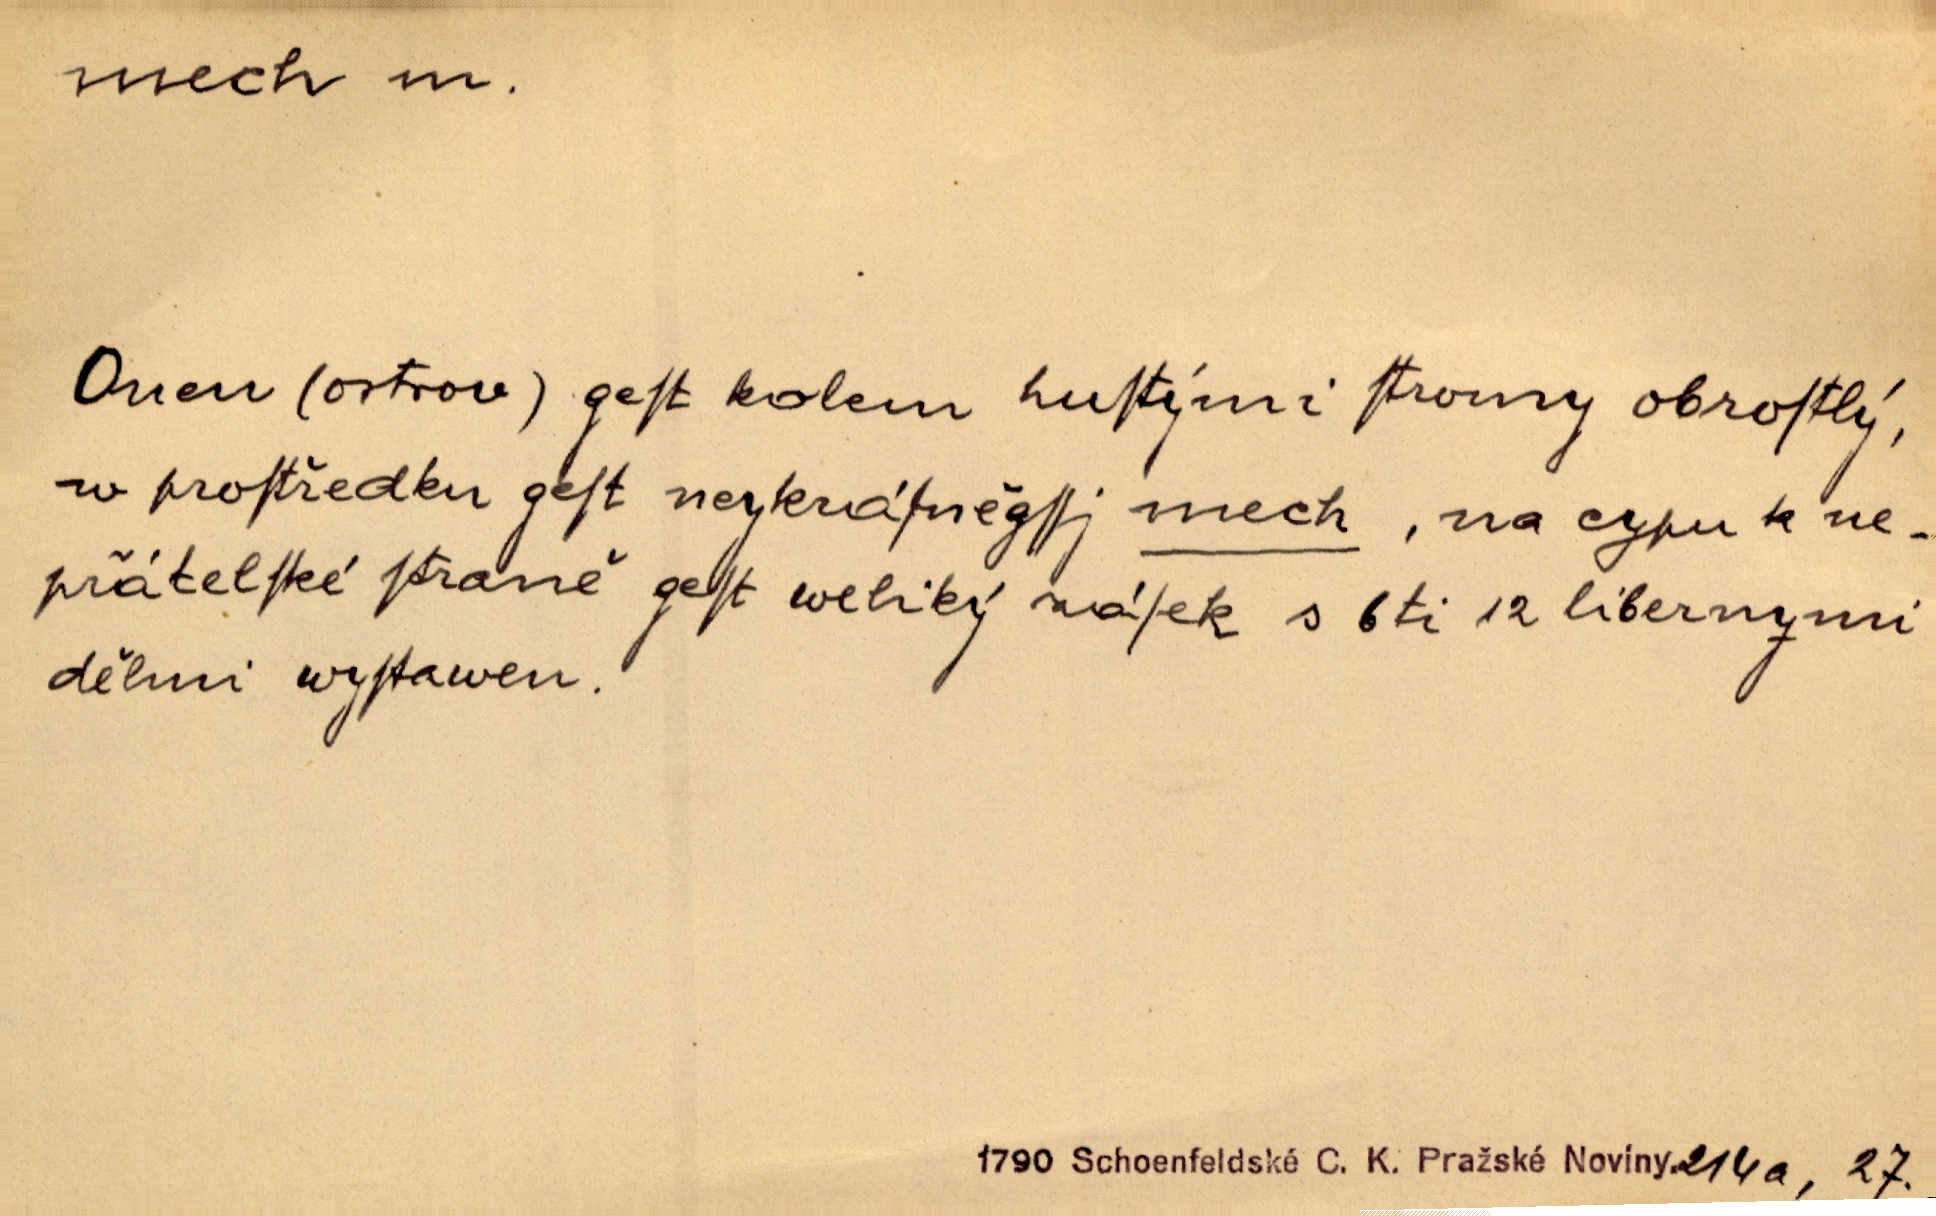 mech m.
Onen (ostrov) geſt kolem huſtými ſtromy obroſtlý,
w proſtředku geſt neykráſněgſſj mech, na cypu k ne-
přátelſké ſtraně geſt weliký náſek s 6ti 12 libernymi
dělmi wyſtawen.
1790 Schoenfeldské C. K. Pražské Noviny. 214a, 27.